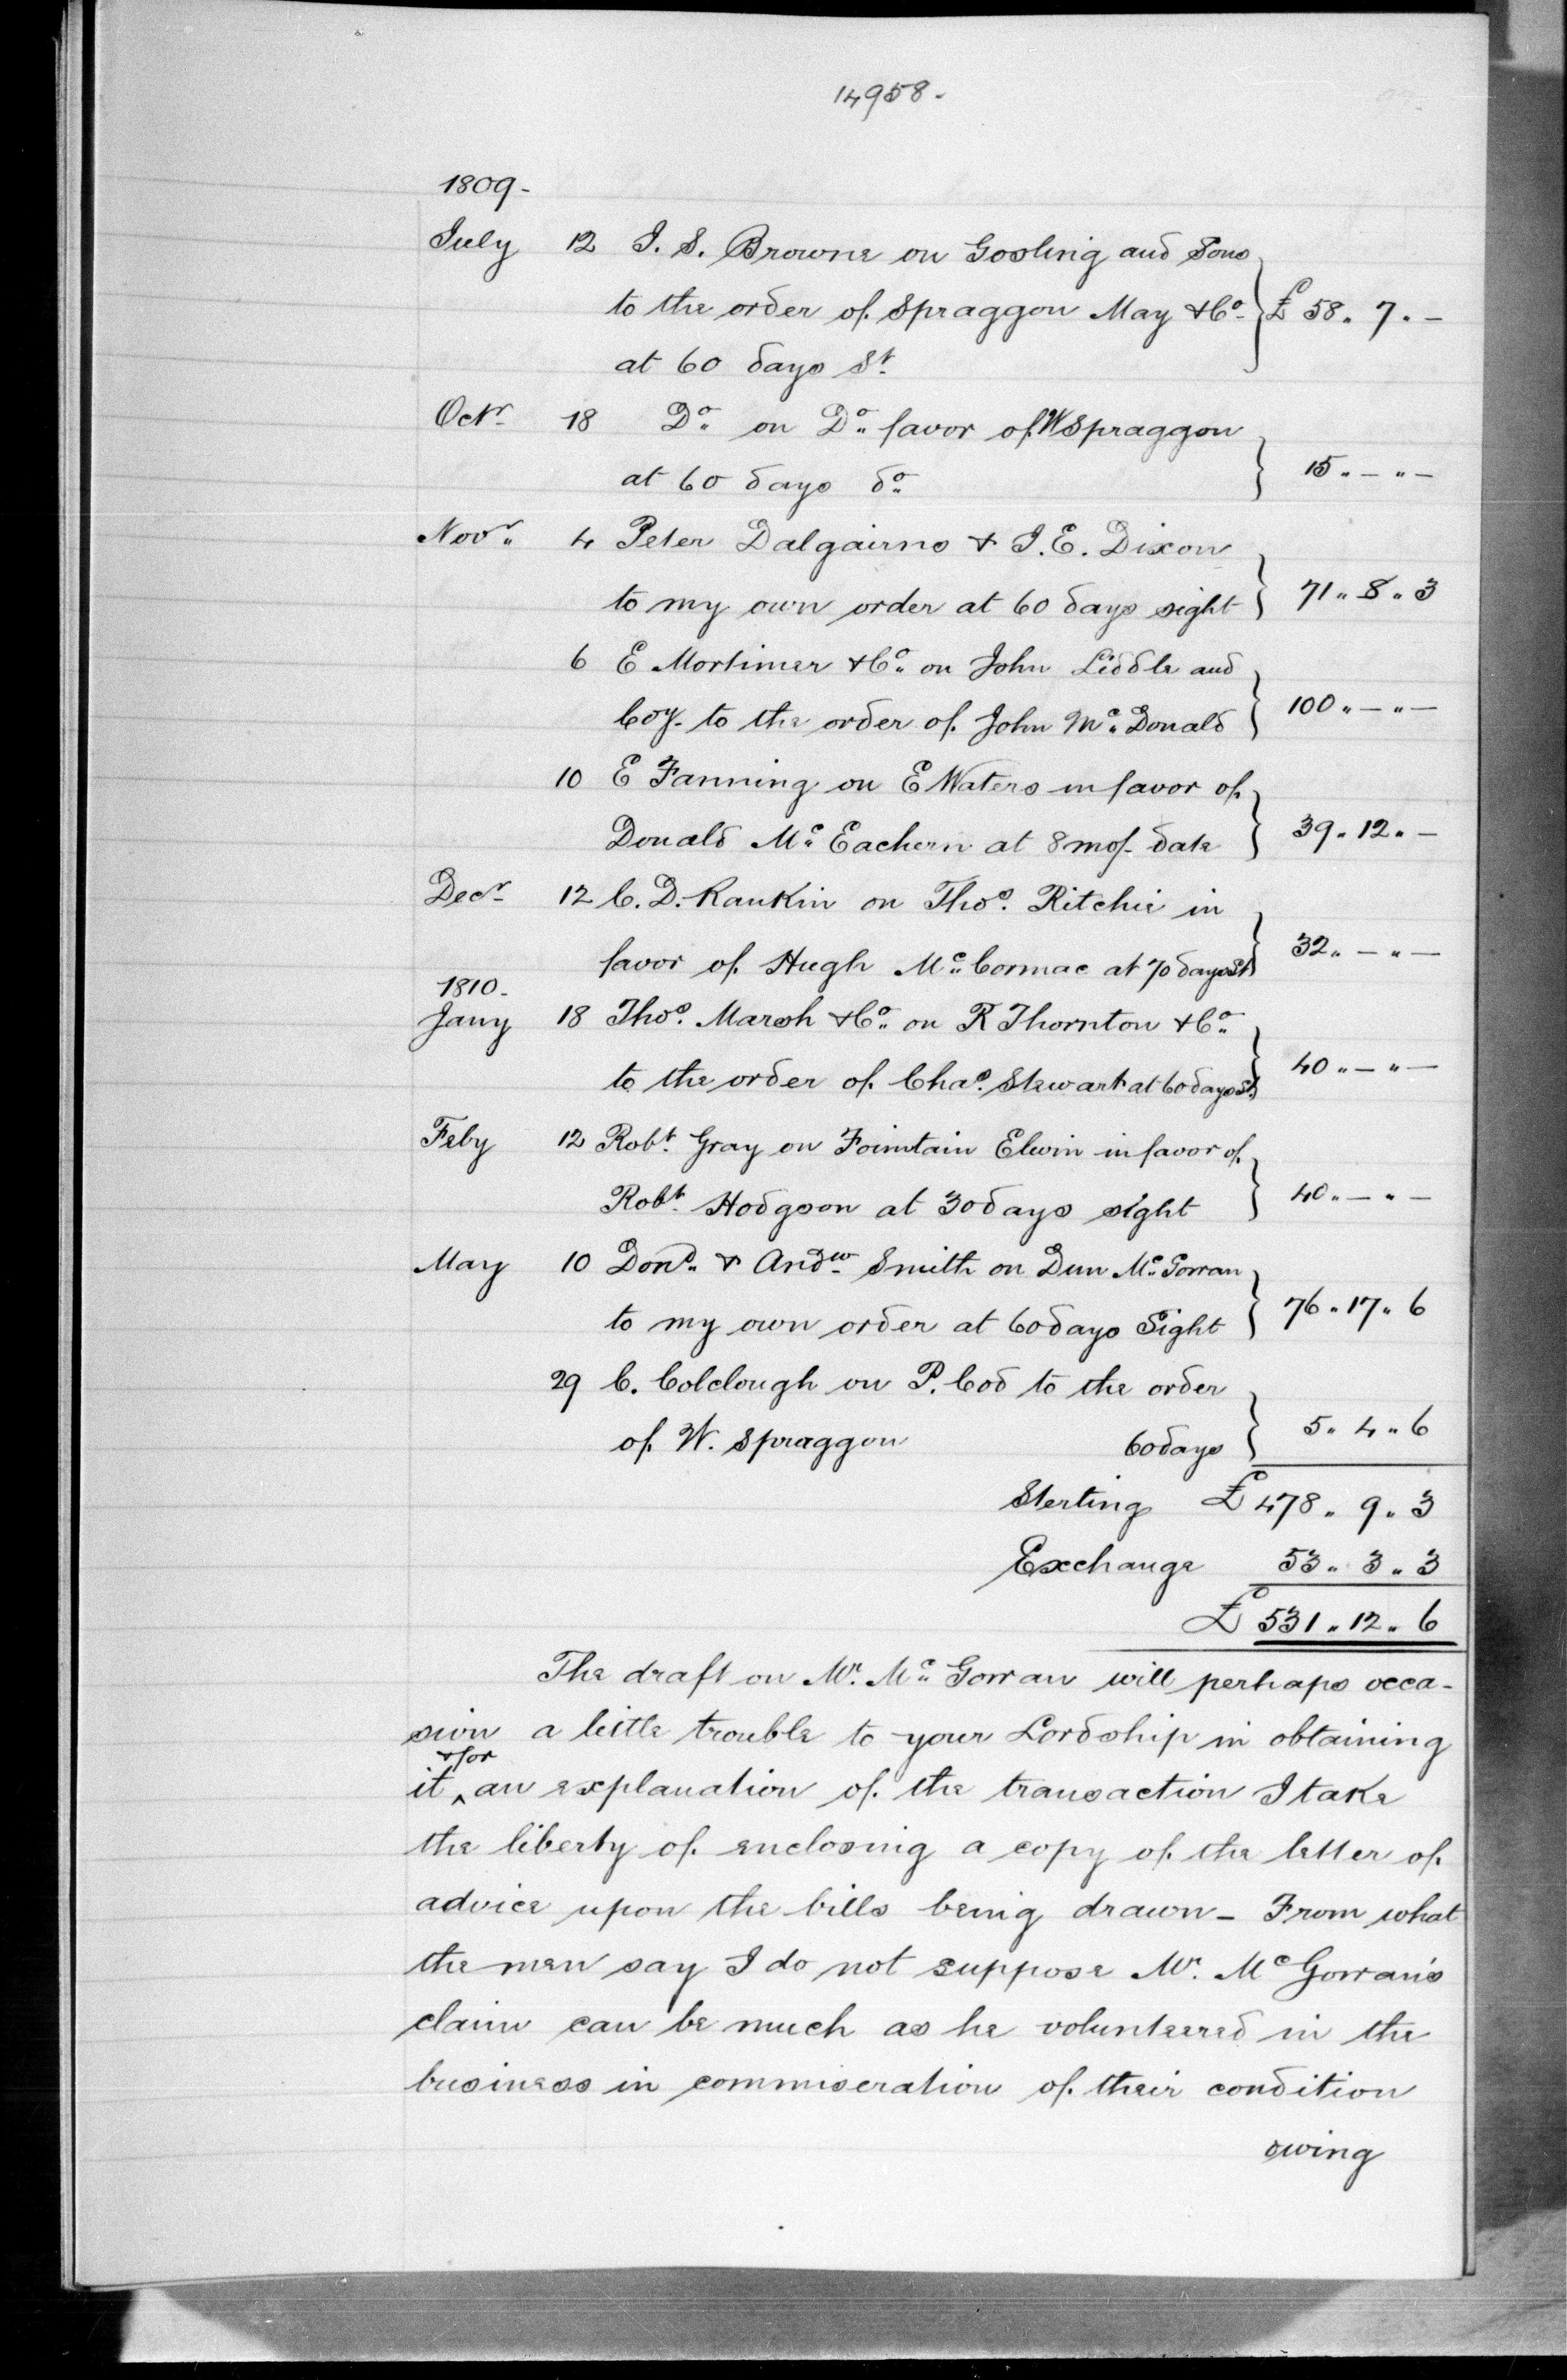 14958.
1809-
July 12 J. S. Browne on Gosling and Sons
to the order of Spraggon May & Co. £ 58 " 7 " -
at 60 days St.
Octr. 18 Do. on Do. favor of W Spraggon
at 60 days do. 15 " - " -
Novr. 4 Peter Dalgairns & J. E. Dixon
to my own order at 60 days sight 71 " 8 " 3
6 E Mortimer & Co. on John Liddle and
Coy. to the order of John Mc. Donald 100 " - " -
10 E Fanning on E Waters in favor of
Donald Mc. Eachern at 8 mos. date 39 " 12 " -
Decr. 12 C. D. Rankin on Thos. Ritchie in
favor of Hugh Mc. Cormac at 70 days St. 32 " - " -
1810.
Jany 18 Thos. Marsh & Co. on R Thornton & Co.
to the order of Chas. Stewart at 60 days St. 40 " - " -
Feby 12 Robt. Gray on Fointain Elwin in favor of
Robt. Hodgson at 30 days sight 40 " - " -
May 10 Dond. & Andw. Smith on Dun Mc. Gowan
to my own order at 60 days Sight 76 " 17 " 6
29 C. Colclough on P. Cod to the order
of W. Spraggon 60 days 5 " 4 " 6
Sterling £ 478 " 9 " 3
Exchange 53 " 3 " 3
£ 531 " 12 " 6
The draft on Mr. Mc. Gowan will perhaps occa-
sion a little trouble to your Lordship in obtaining
it ^ & for an explanation of the transaction I take
the liberty of enclosing a copy of the letter of
advice upon the bills being drawn - From what
the men say I do not suppose Mr. Mc Gowan's
claim can be much as he volunteered in the
business in commiseration of their condition
owing